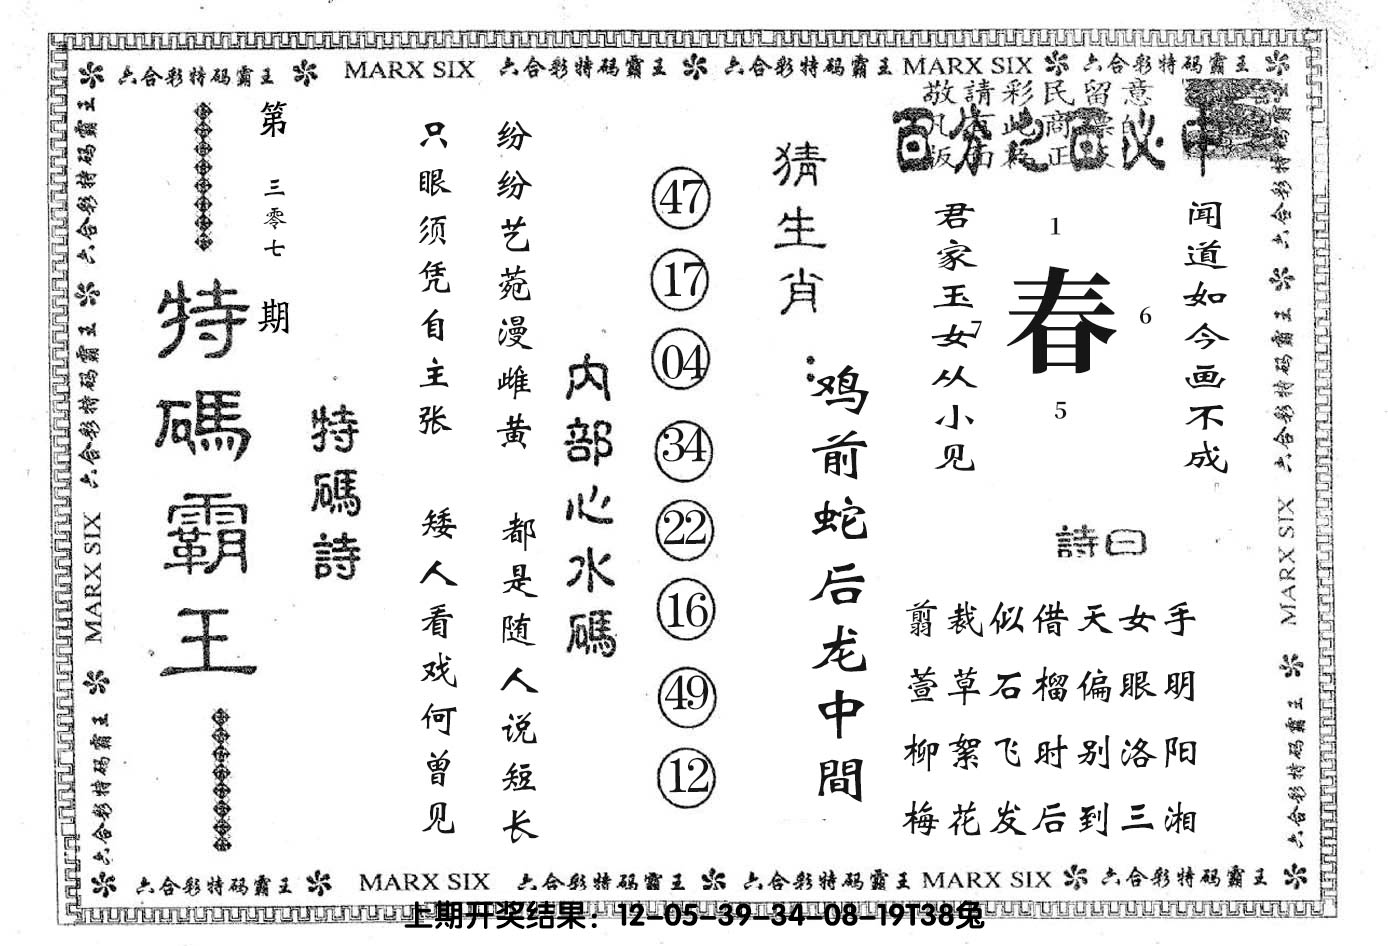 六合彩特码霸王 MARX SIX 六合彩特码霸王 六合彩特码霸王 MARX SIX 六合彩特码霸王
敬請彩民留意
百分之百必中
闻道如今画不成
1
春
7
6
5
君家玉女从小见
詩曰
剪裁似借天女手
萱草石榴偏眼明
柳絮飞时别洛阳
梅花发后到三湘
猜生肖：
鸡前蛇后龙中間
47
17
04
34
22
16
49
12
内部心水碼
纷纷艺苑漫雌黄
都是随人说短长
只眼须凭自主张
矮人看戏何曾见
特碼詩
第三零七期
特碼霸王
六合彩特码霸王 六合彩特码霸王 MARX SIX 六合彩特码霸王
六合彩特码霸王 六合彩特码霸王 MARX SIX 六合彩特码霸王
六合彩特码霸王 MARX SIX 六合彩特码霸王 六合彩特码霸王 MARX SIX 六合彩特码霸王
上期开奖结果：12-05-39-34-08-19T38兔